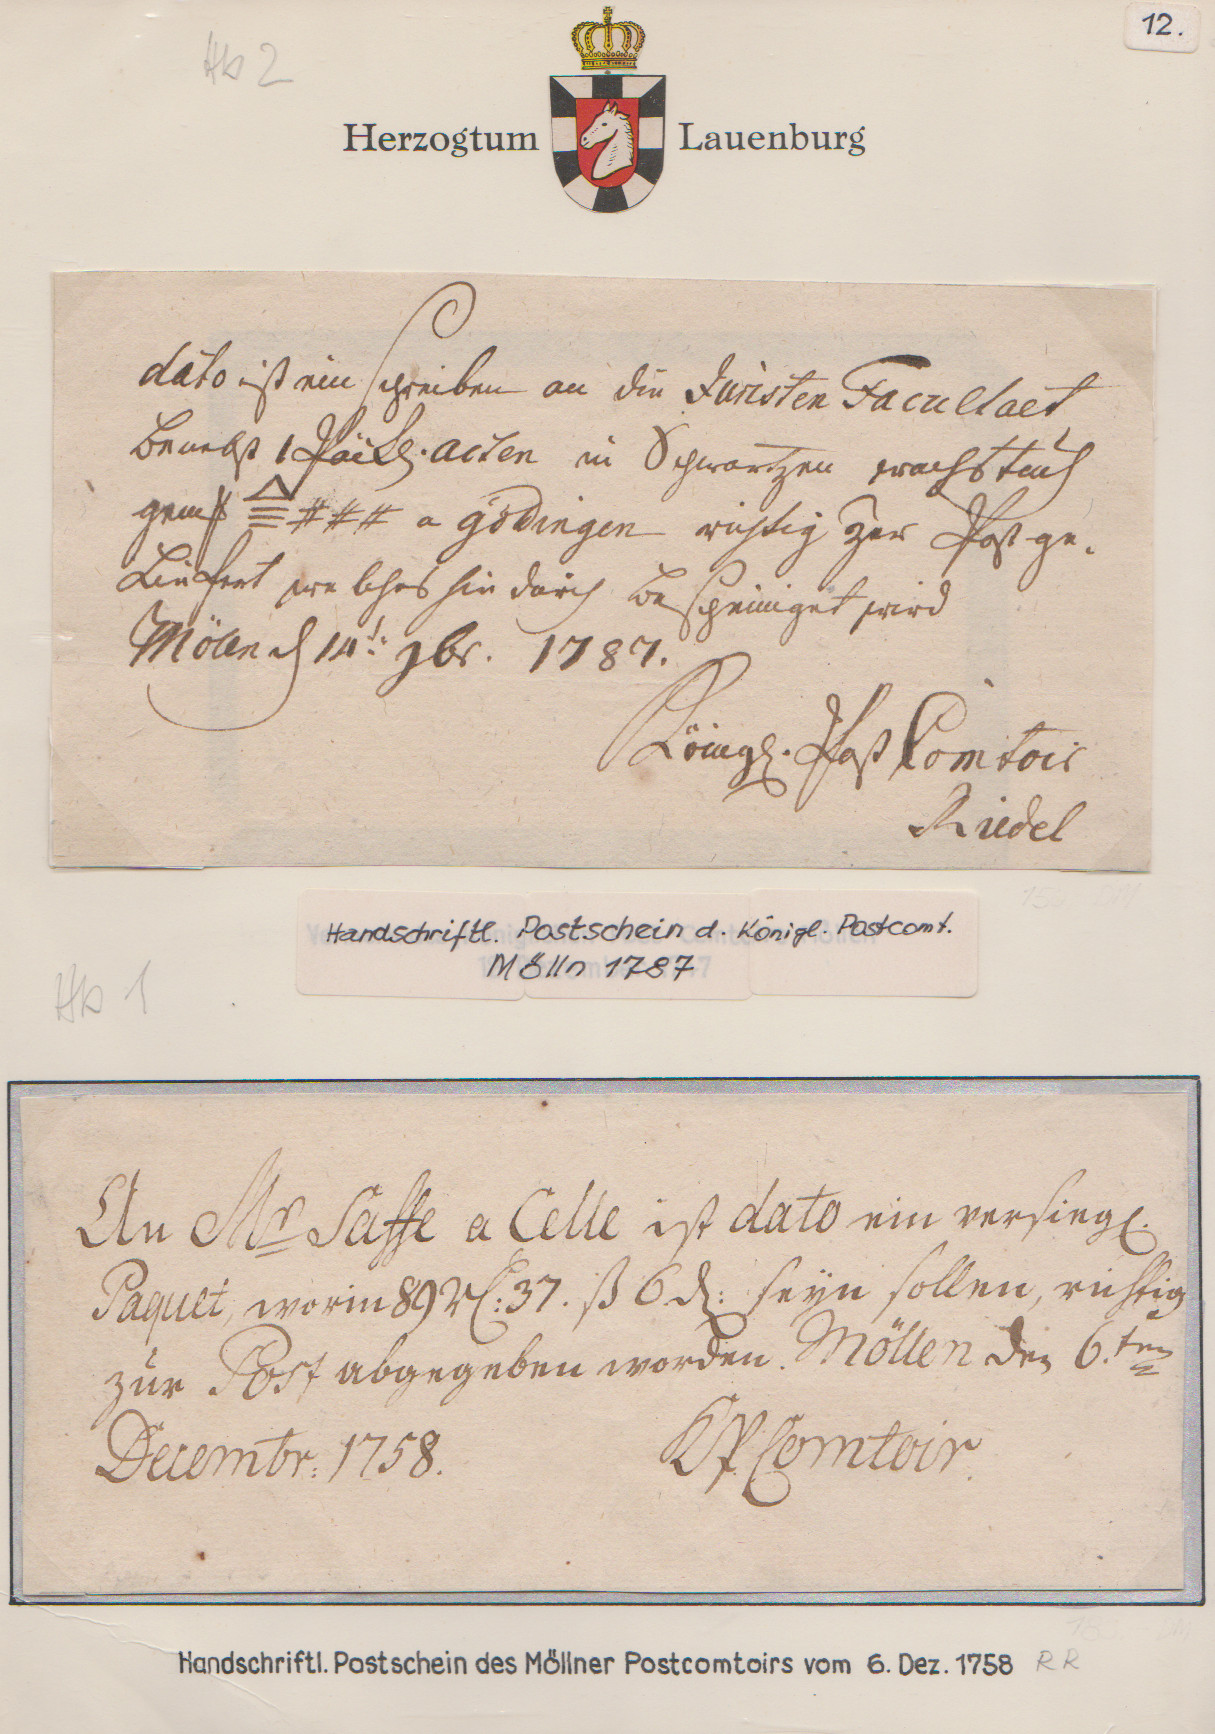 Hb 2
12.
Herzogtum Lauenburg
dato ist ein Schreiben an die Juristen Facultaet
benebst 1 Päckl. acten in Schwartzen wachstuch
gem. ### a Gödingen richtig zur Post ge-
liefert welches hie durch bescheiniget wird
Mölln d 14t. 9br. 1787.
Königl. Post Comtoir
Riedel
Handschriftl. Postschein d. Königl. Postcomt.
Mölln 1787
Hb 1
An Mr Sasse a Celle ist dato ein versiegl.
Paquet, worin 89 Rl: 37. ß 6 d: seyn sollen, richtig
zur Post abgegeben worden. Möllen den 6.ten
Decembr: 1758. KP. Comtoir.
Handschriftl. Postschein des Möllner Postcomtoirs vom 6. Dez. 1758 RR